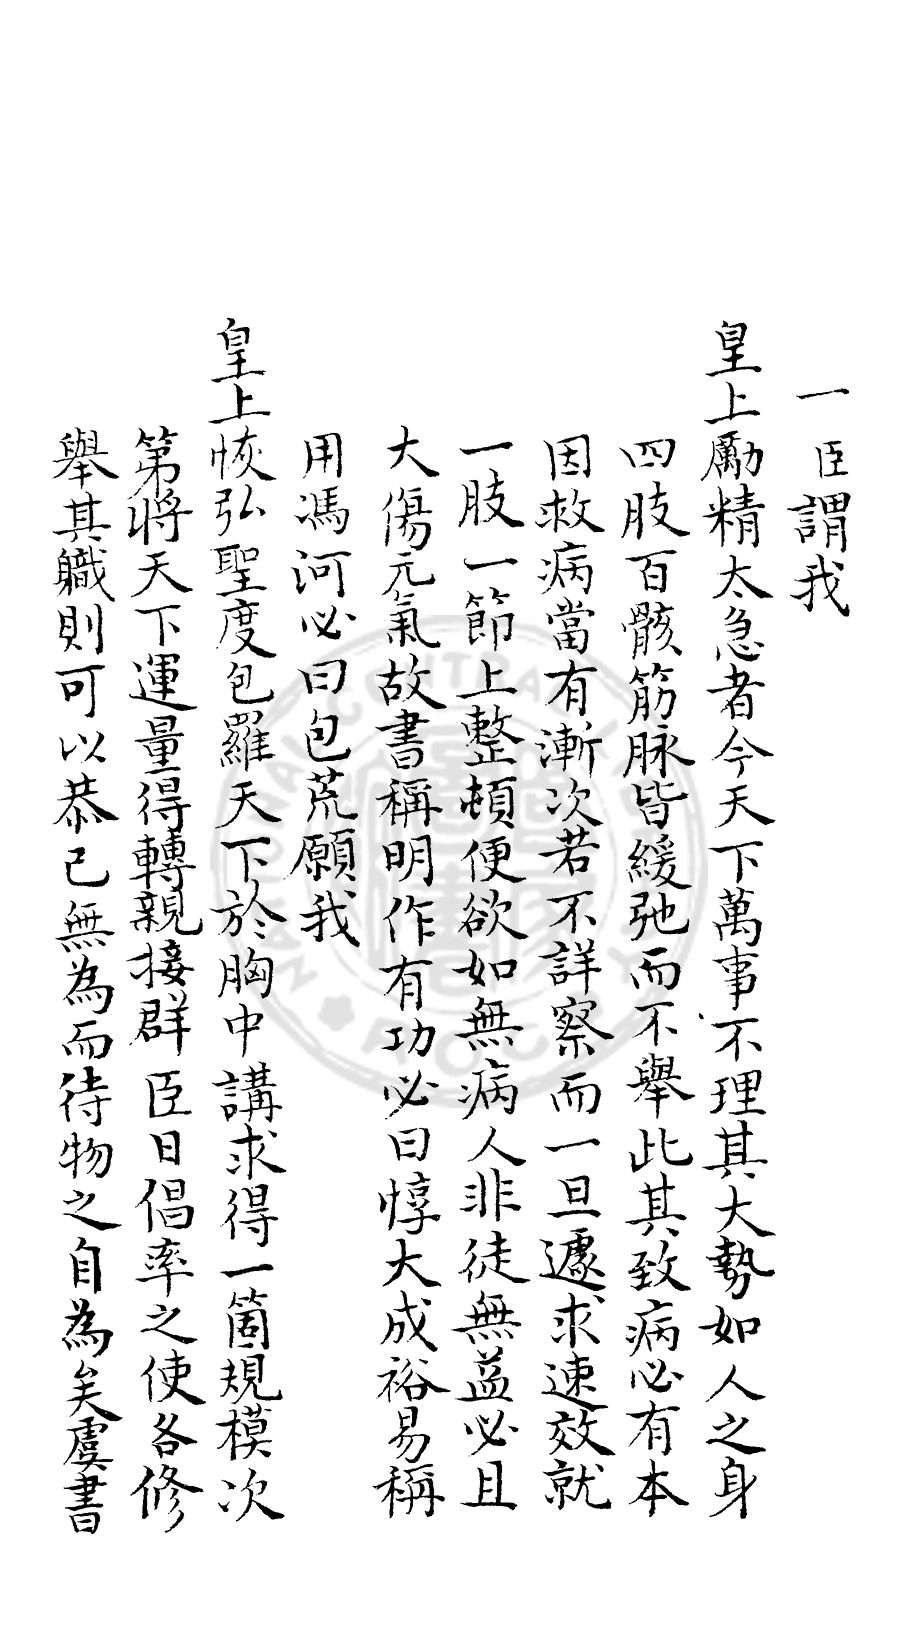 一臣謂我
皇上勵精太急者今天下萬事不理其大勢如人之身
四肢百骸筋脉皆緩弛而不舉此其致病必有本
因救病當有漸次若不詳察而一旦遽求速效就
一肢一節上整頓便欲如無病人非徒無益必且
大傷元氣故書稱明作有功必曰惇大成裕易稱
用馮河必曰包荒願我
皇上恢弘聖度包羅天下於胸中講求得一箇規模次
第將天下運量得轉親接群臣日倡率之使各修
舉其職則可以恭己無為而待物之自為矣虞書